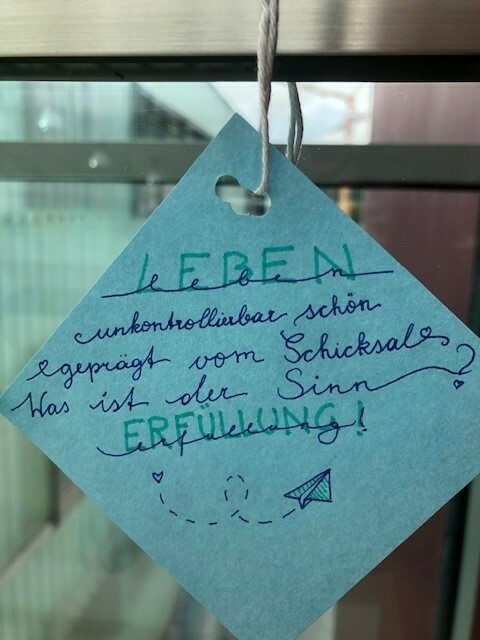 LEBEN
leben
unkontrollierbar schön
geprägt vom Schicksal
Was ist der Sinn?
ERFÜLLUNG!
erfüllung